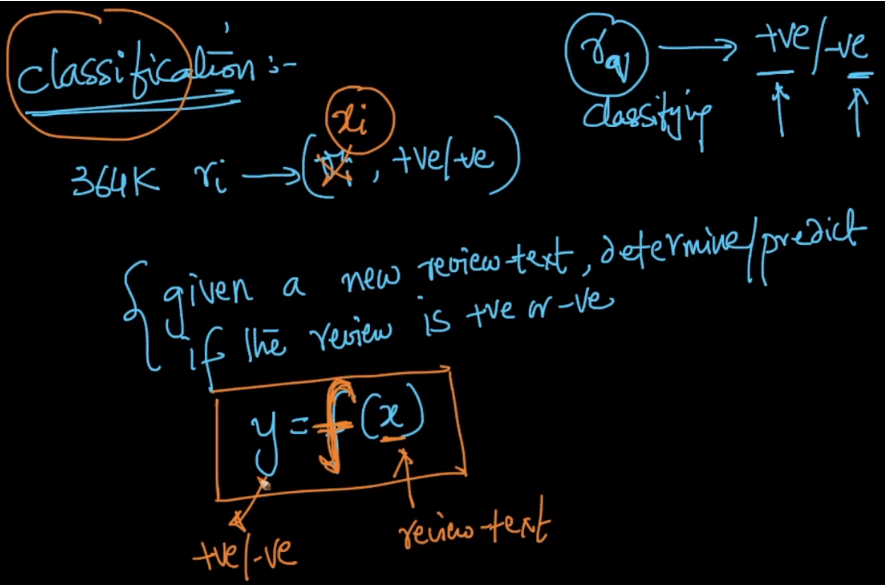 classification :-
r_q → +ve/-ve
classifying
x_i
364K r_i → ( , +ve/-ve)
{ given a new review text, determine/predict
if the review is +ve or -ve
y = f(x)
+ve/-ve
review text